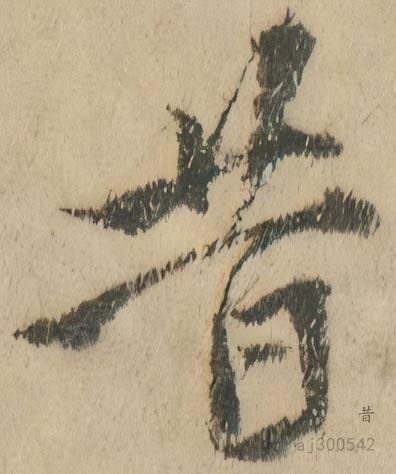 昔
昔
aj300542